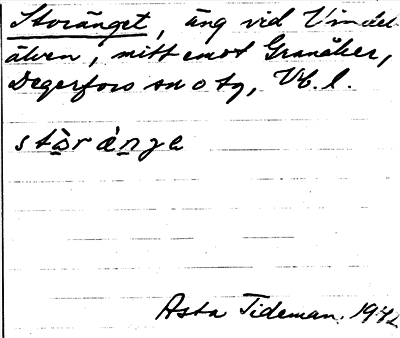 Storänget, äng vid Vindel-
älven, mitt emot Granåker,
Degerfors sn o tg, Vb. l.
stòràṉge
Asta Tideman. 1942